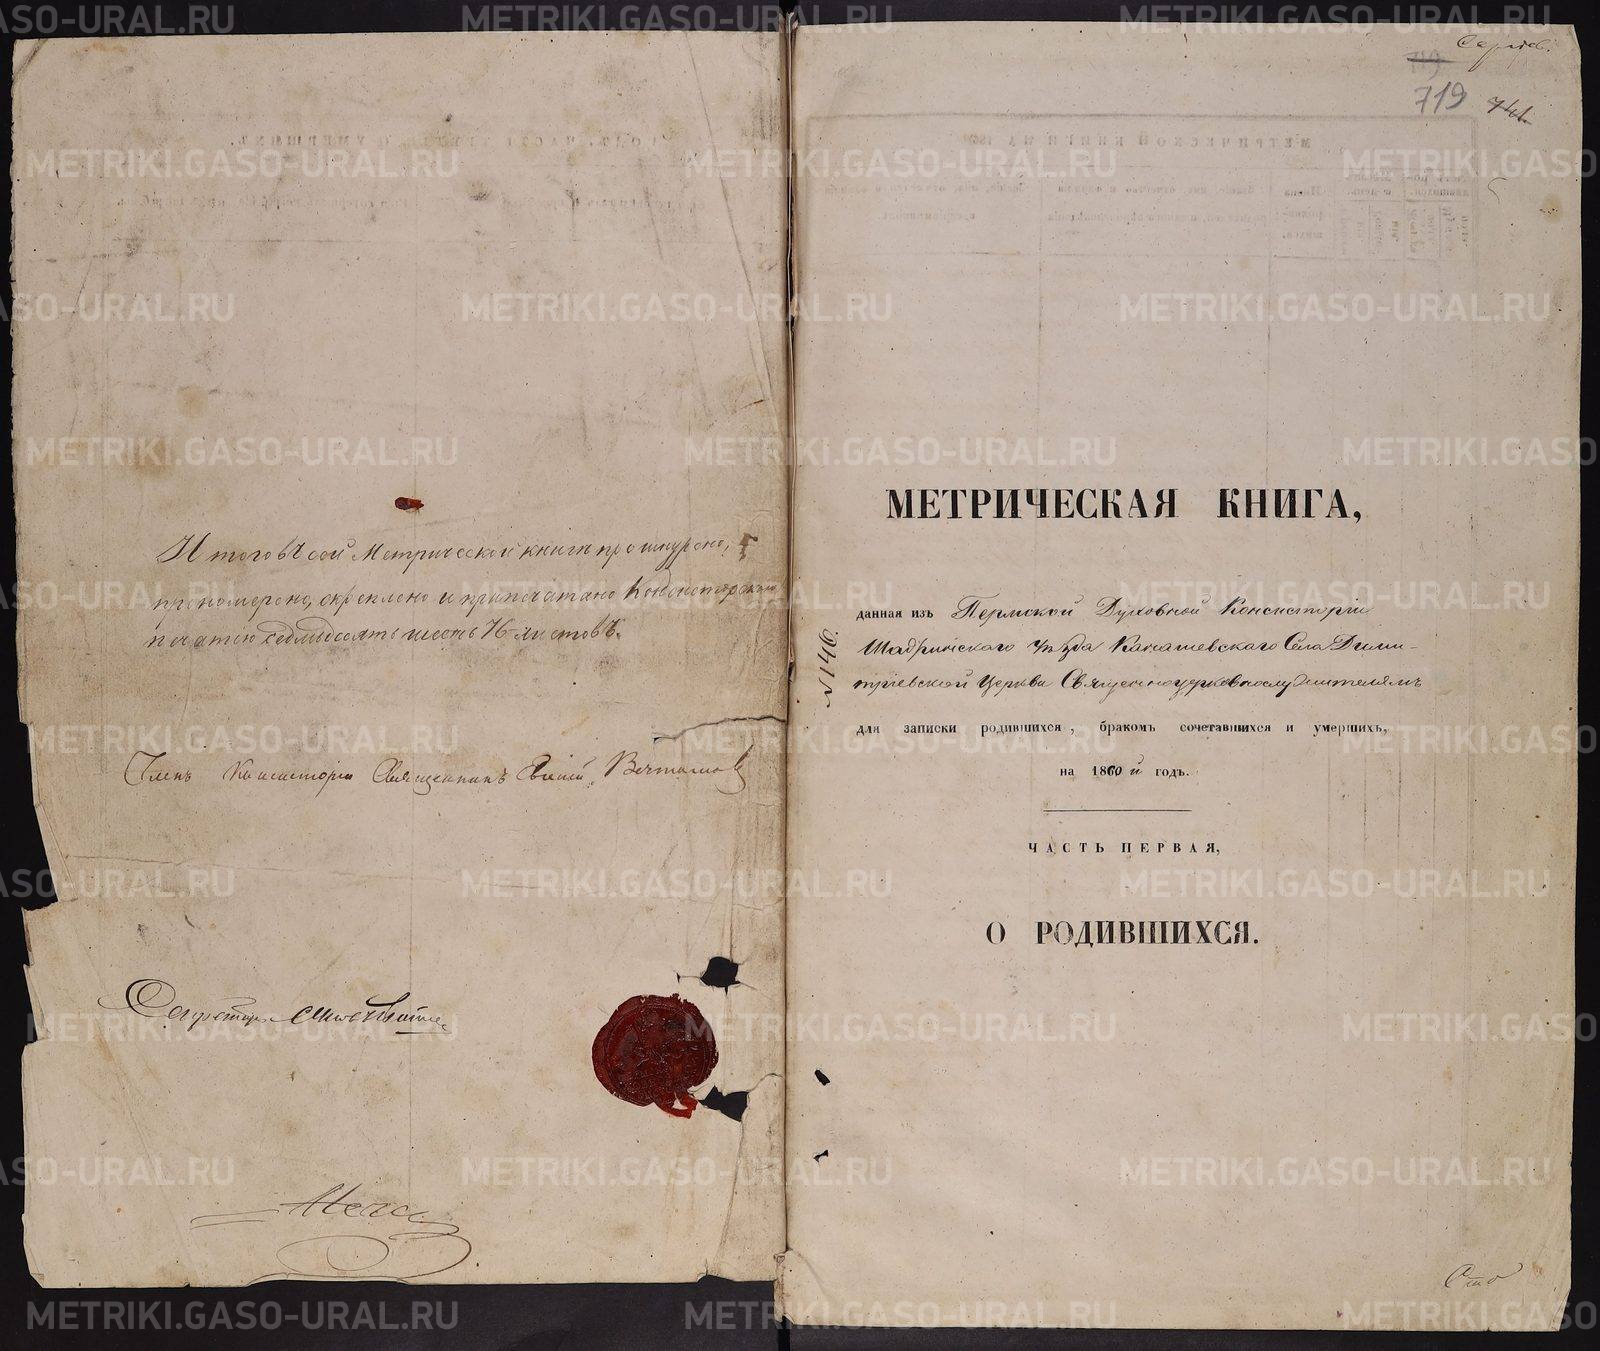 Итого въ сей Метрической книгѣ прошнурено,
прономерено, скреплено и припечатано Консисторскою
печатью седмьдесятъ шесть 76 листовъ.
Членъ Консисторіи Священникъ
Секретарь
719
741
№ 146
МЕТРИЧЕСКАЯ КНИГА,
данная изъ Пермской Духовной Консисторіи
Шадринскаго уѣзда Канашевскаго Села Дими-
тріевской Церкви Священноцерковнослужителямъ
для записки родившихся, бракомъ сочетавшихся и умершихъ,
на 1860 й годъ.
ЧАСТЬ ПЕРВАЯ,
О РОДИВШИХСЯ.
Сто
METRIKI.GASO-URAL.RU